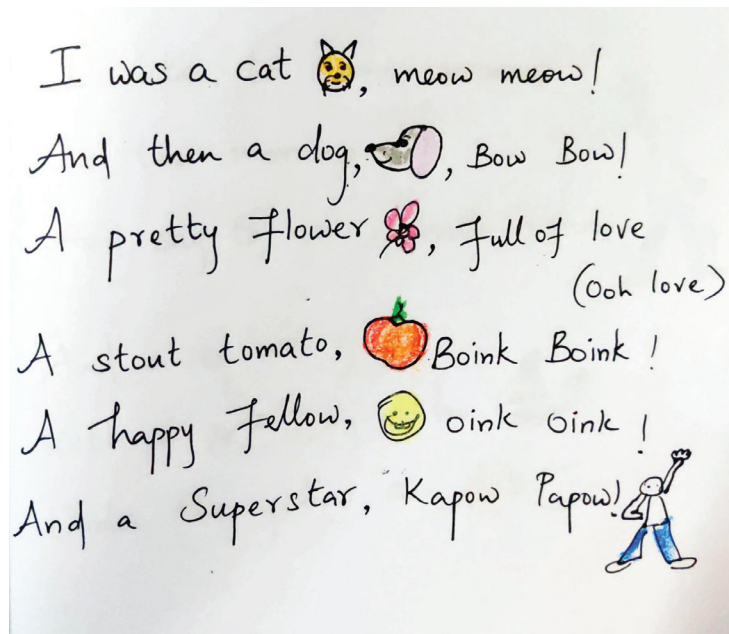 I was a cat, meow meow!
And then a dog,, Bow Bow!
A pretty flower, full of love
(Ooh love)
A stout tomato, Boink Boink!
A happy fellow, oink oink!
And a Superstar, Kapow Papow!